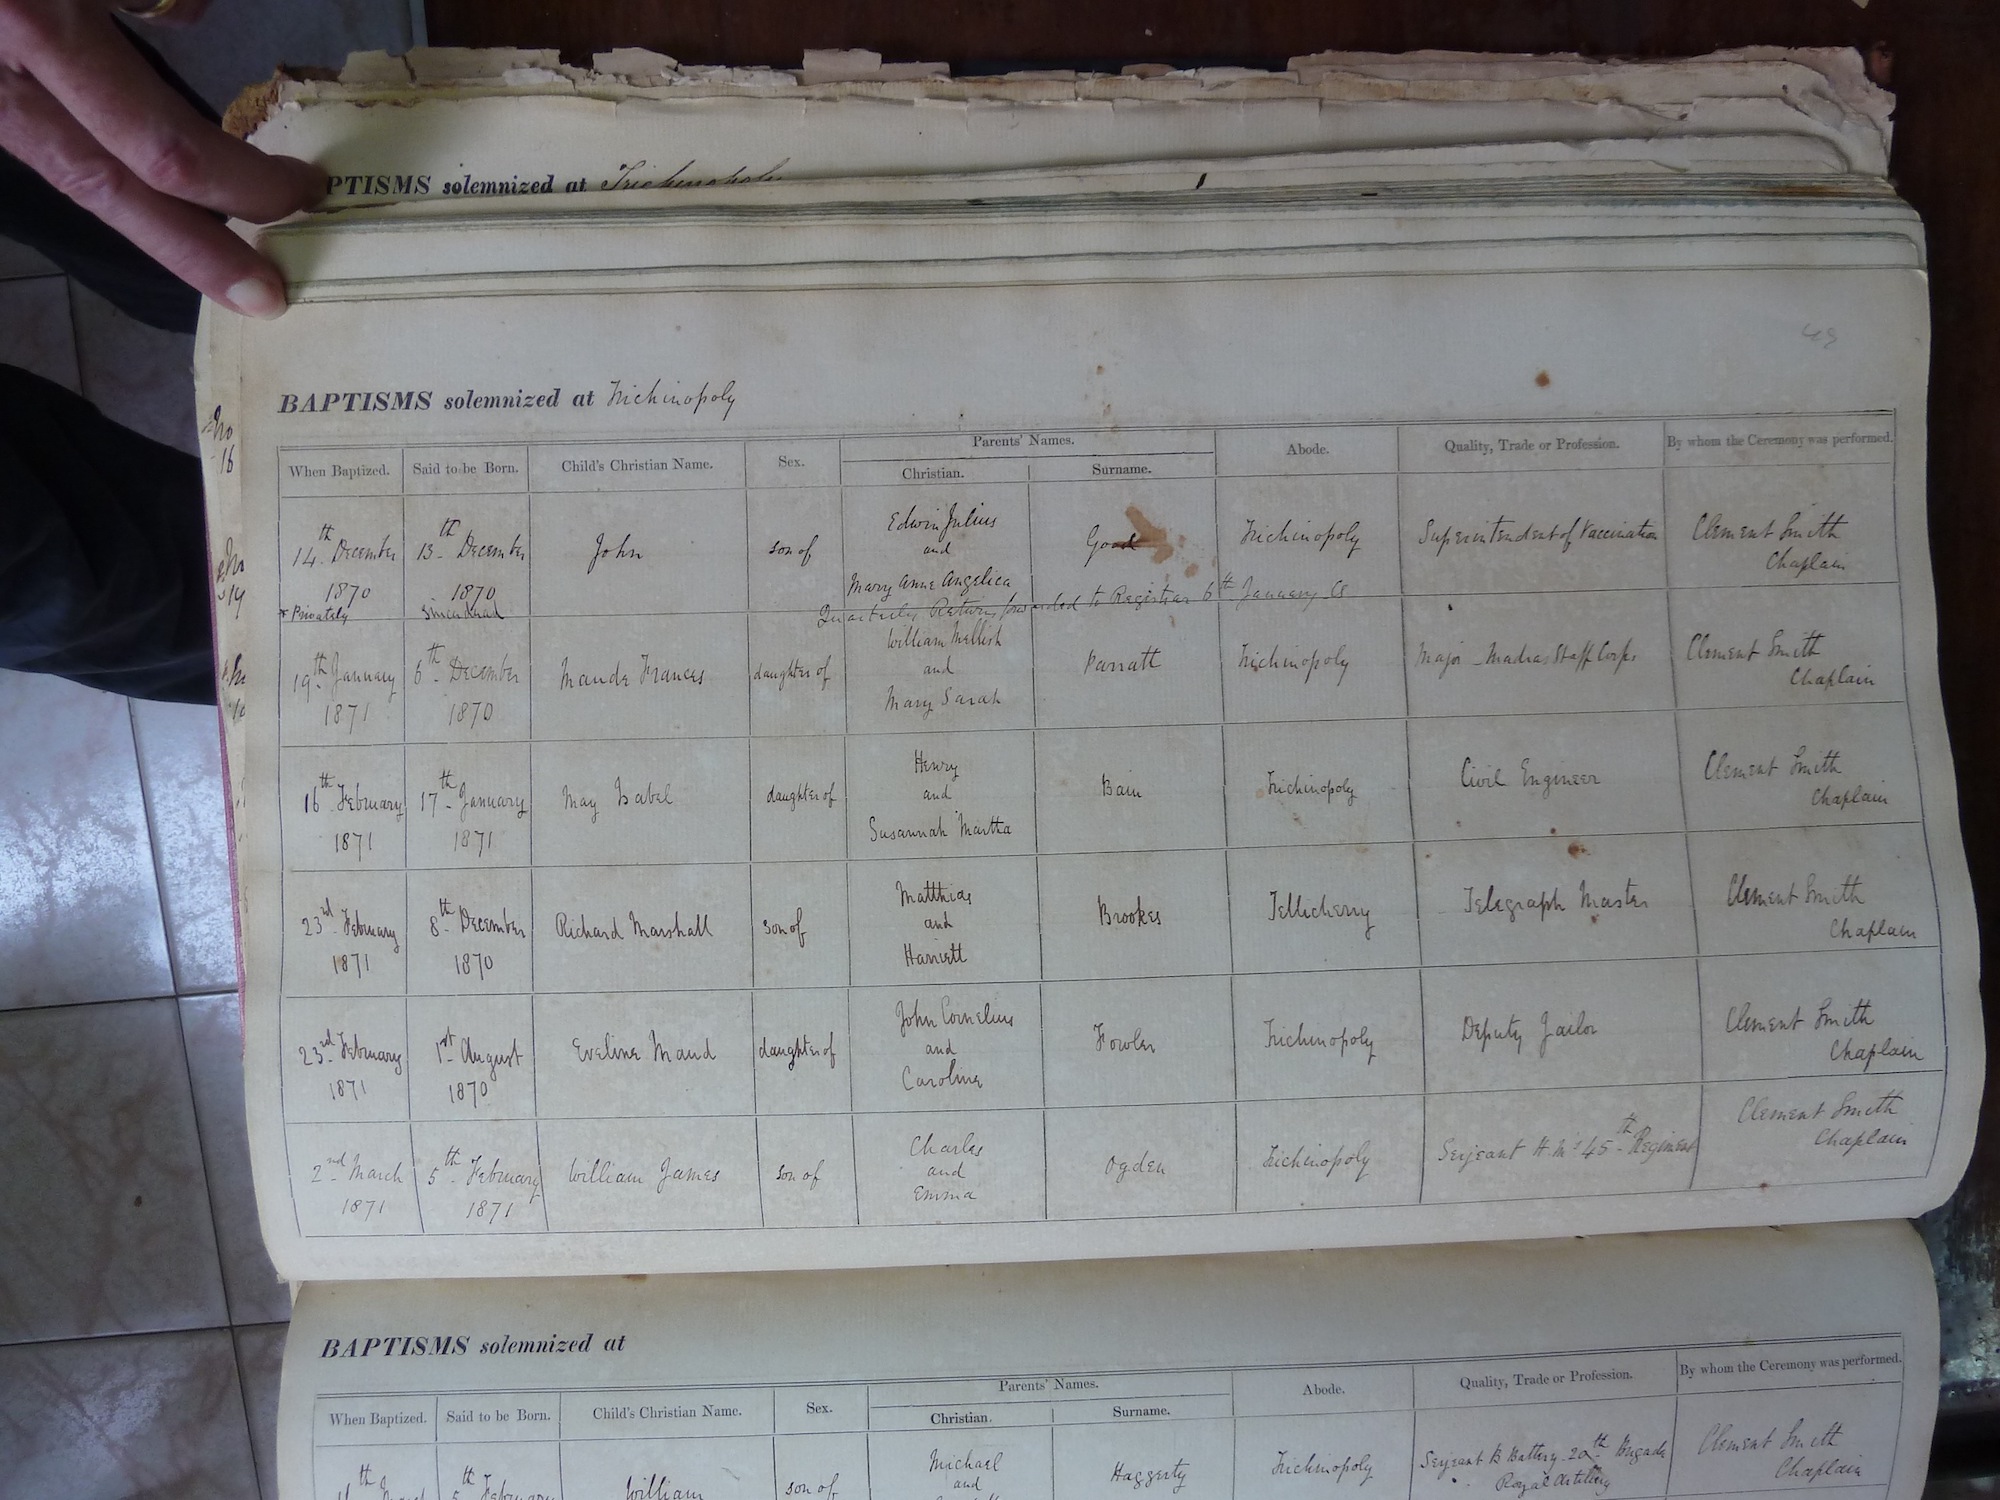 PTISMS solemnized at Trichinopoly
49
BAPTISMS solemnized at Trichinopoly
When Baptized. Said to be Born. Child's Christian Name. Sex. Parents' Names. Abode. Quality, Trade or Profession. By whom the Ceremony was performed.
Christian. Surname.
14th December 1870 13th December 1870 John son of Edwin Julius and Mary Anne Angelica Good Trichinopoly Superintendent of Vaccination Clement Smith Chaplain
* Privately
Quarterly Return forwarded to Registrar 6th January CS
19th January 1871 6th December 1870 Maude Frances daughter of William Mellish and Mary Sarah Parratt Trichinopoly Major Madras Staff Corps Clement Smith Chaplain
16th February 1871 17th January 1871 May Isabel daughter of Henry and Susannah Martha Bain Trichinopoly Civil Engineer Clement Smith Chaplain
23rd February 1871 8th December 1870 Richard Marshall son of Matthias and Harriett Brookes Tellicherry Telegraph Master Clement Smith Chaplain
23rd February 1871 1st August 1870 Eveline Maud daughter of John Cornelius and Caroline Fowler Trichinopoly Deputy Jailor Clement Smith Chaplain
2nd March 1871 5th February 1871 William James son of Charles and Emma Ogden Trichinopoly Serjeant H.M's 45th Regiment Clement Smith Chaplain
BAPTISMS solemnized at
When Baptized. Said to be Born. Child's Christian Name. Sex. Parents' Names. Abode. Quality, Trade or Profession. By whom the Ceremony was performed.
Christian. Surname.
5th February William son of Michael and Haggerty Trichinopoly Serjeant B Battery 20th Brigade Royal Artillery Clement Smith Chaplain